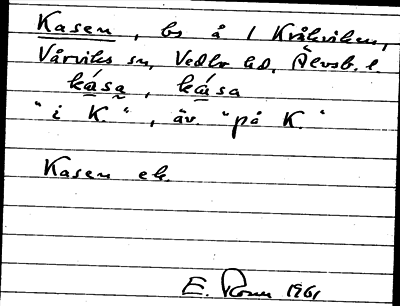 Kasen, bs å 1 Kråkviken,
Vårviks sn, Vedbo hd, Älvsb. l.
ká̲sa̰, ká̲sa
"i K.", äv. "på K."
Kasen ek.
E. 1961